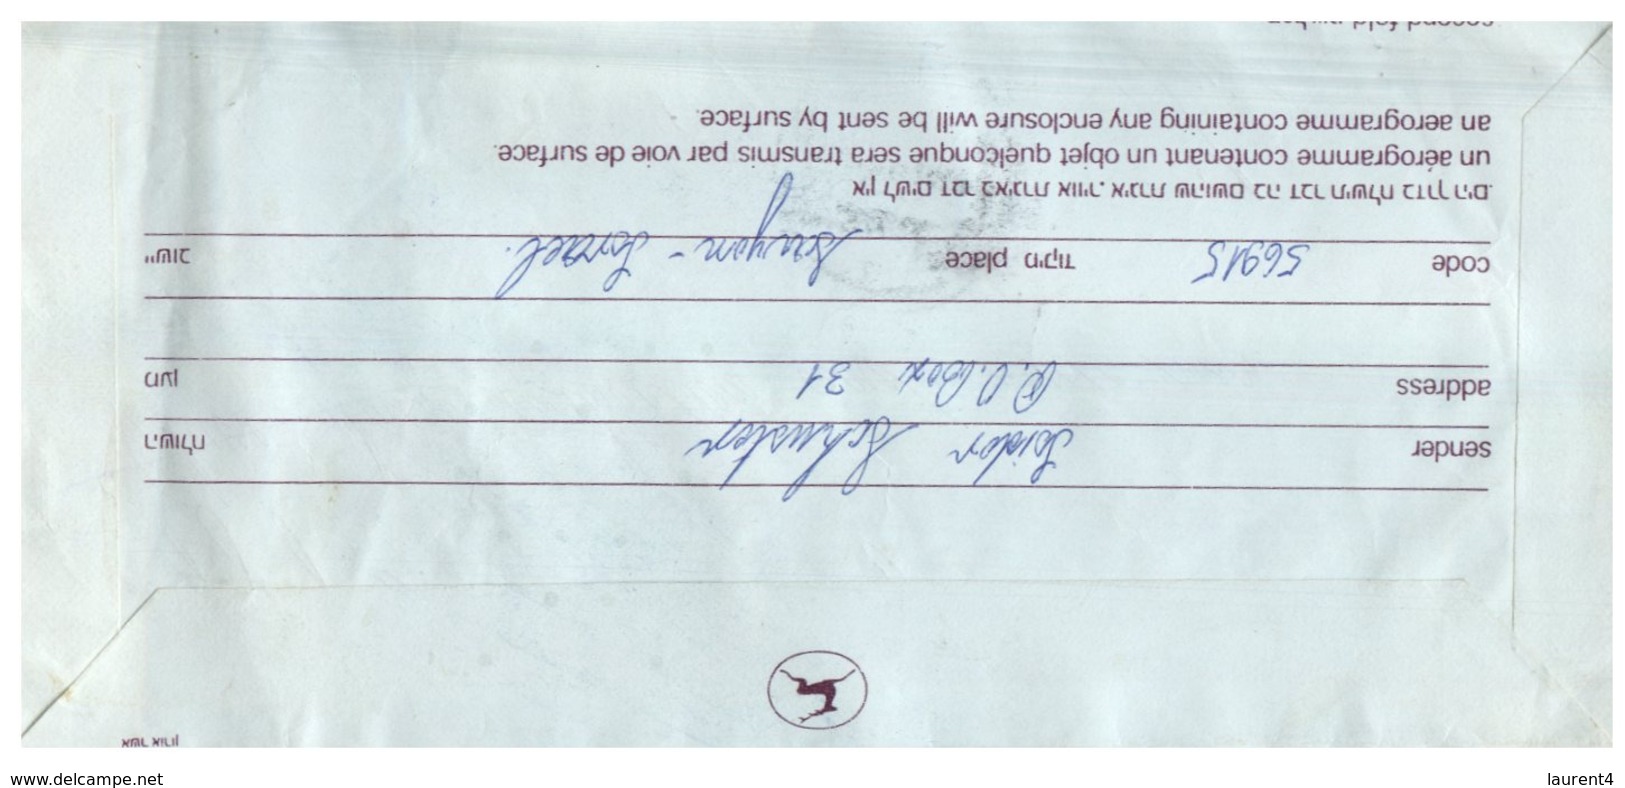 sender Isidor Schuster השולח
address P.O.Box 31 מען
code 56915 מיקוד place Savyon - Israel. יישוב
אין לשים דבר באיגרת אוויר. איגרת שהושם בה דבר תישלח בדרך הים.
un aérogramme contenant un objet quelconque sera transmis par voie de surface.
an aerogramme containing any enclosure will be sent by surface.
second fold
www.delcampe.net
laurent4